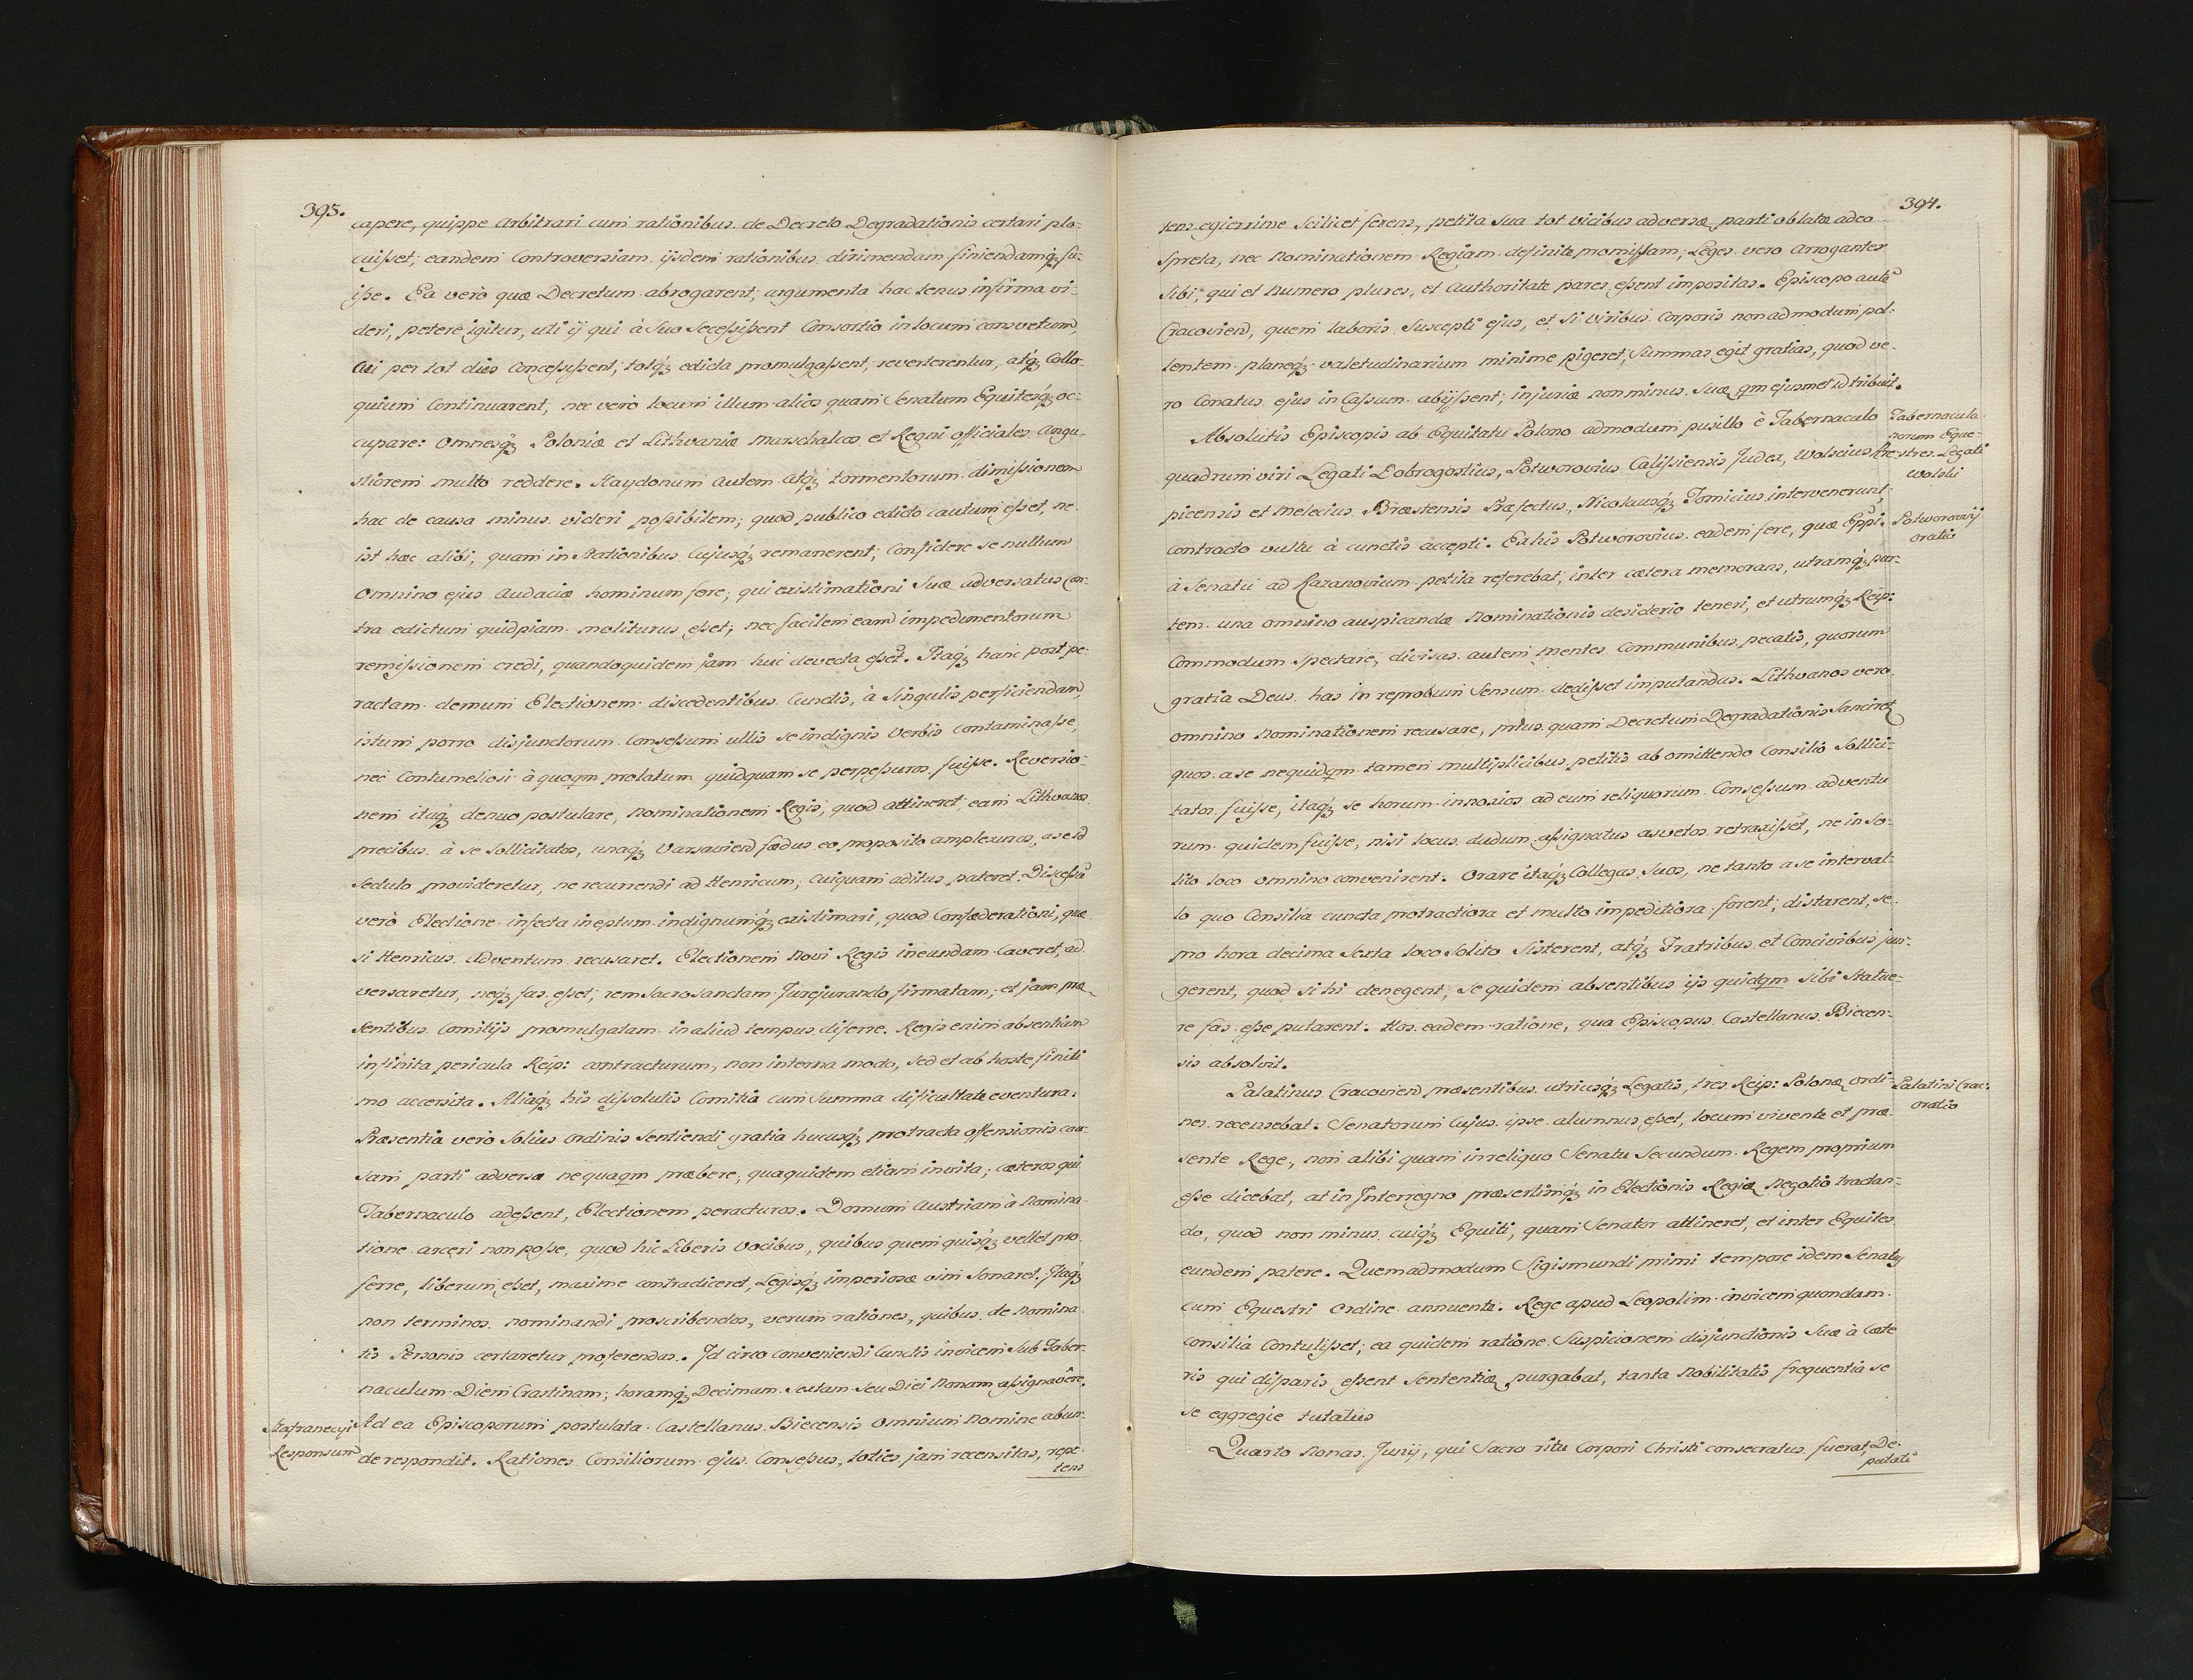 395.
capere, quippe arbitrari cum rationibus de Decreto Degradationis certari pla-
cuisset; eandem Controversiam ijsdem rationibus dirimendam finiendamq́ʒ fu-
isse. Ea verò quæ Decretum abrogarent; argumenta hactenus infirma vi-
deri, petere igitur, uti ij qui à Suo Secessissent Consortio in locum consvetum,
qui per tot dies Concessissent, totq́ʒ edicta promulgassent, reverterentur, atq́ʒ Collo-
quium Continuarent, nec verò locum illum alios quam Senatum Equitesq́ʒ oc-
cupare: Omnesq́ʒ Poloniæ et Lithvaniæ Marschalcos et Regni officiales angu-
stiorem multo reddere. Haydonum autem atq́ʒ tormentorum dimissionem
hac de causa minus videri possibilem; quod publico edicto cautum esset, ne
ist hæc alibi, quam in Stationibus Cujusq́ʒ remanerent; Confidere se nullum
omnino ejus Audaciæ hominum fore; qui existimationi Suæ adversatus con-
tra edictum quidpiam moliturus esset; nec facilem eam impedimentorum
remissionem credi, quandoquidem jam huc devecta esset. Itaq́ʒ hanc post pe-
ractam demum Electionem discedentibus Cunctis, à Singulis perficiendam,
istum porro disjunctorum Consessum ullis se indignis Verbis contaminasse,
nec Contumeliosi à quoqm prolatum quidquam se perpessuros fuisse. Reversio-
nem itaq́ʒ denuo postulare, Nominationem Regis, quod attineret, eam Lithvanos
precibus à se Sollicitatos, unaq́ʒ Varsavien fœdus eo proposito amplexuros, a se id
sedulo provideretur, ne recurrendi ad Henricum, cuiquam aditus pateret. Discessū
verò Electione infecta ineptum indignumq́ʒ existimari, quod Confœderationi, quæ
si Henricus Adventum recusaret. Electionem Novi Regis ineundam Caveret, ad-
versaretur, neq́ʒ fas esset, rem Sacrosanctam Jurejurando firmatam, et jam præ-
sentibus Comitijs promulgatam in aliud tempus differre. Regis enim absentiam
infinita pericula Reip: contracturum, non interna modo, sed et ab hoste finiti
mo accersita. Aliaq́ʒ his dissolutis Comitia cum Summa dificultate eventura.
Præsentia verò Solius ordinis Sentiendi gratia hucusq́ʒ protracta offensionis cau-
sam parti adversæ nequaqm præbere, qua quidem etiam invita; cæteros qui
Tabernaculo adessent, Electionem peracturos. Domum Austriam à Nomina-
tione arceri non posse, quod hic Liberis Vocibus, quibus quem quisq́ʒ vellet pro-
ferre, liberum esset, maxime contradiceret, Legisq́ʒ imperiosæ vim Sonaret. Itaq́ʒ
non terminos nominandi proscribendos, verum rationes, quibus de Nomina
tis Personis certaretur proferendas. Id circo conveniendi Cunctis invicem Sub Taber-
naculum Diem Crastinam; horamq́ʒ Decimam Sextam Seu Diei Nonam assignavêre.
Ad ea Episcoporum postulata Castellanus Biecensis Omnium Nomine abun-
de respondit. Rationes Consiliorum ejus Consessus, toties jam recensitas, repe-
tens
Stafranecyi
Responsum
394.
tens egierrime Scilicet ferens, petita Sua tot vicibus adversæ parti oblata adeo
Spreta, nec Nominationem Regiam definite promissam; Leges vero Arroganter
Sibi, qui et Numero plures, et Authoritate pares essent impositas. Episcopo autē
Cracovien, quem laboris Suscepti ejus, et Si viribus Corporis non admodum pol-
lentem planeq́ʒ valetudinarium minime pigeret, Summas egit gratias, quod ve-
ro Conatus ejus in Cassum abijssent; injuriæ non minus Suæ qm ejusmet id tribuit.
Absolutis Episcopis ab Equitatu Polono admodum pusillo è Tabernaculo
quadrumviri Legati Dobrogostius, Potworovius Calissiensis Judex, Wolscius Kre-
picensis et Melecius Bræstensis Præfectus, Nicolausq́ʒ Tomicius intervenerunt,
contracto vultu à cunctis accepti. Ex his Potworovius eadem fere, quæ Eppi.
à Senatu ad Kazanovium petita referebat, inter cætera memorans, utramq́ʒ par-
tem una omnino auspicandæ Nominationis desiderio teneri, et utrumq́ʒ Reip:
Commodum Spectare, divisas autem Mentes Communibus pecatis, quorum
gratia Deus has in reprobum Sensum dedisset imputandas. Lithvanos vero
omnino Nominationem recusare, prius quam Decretum Degradationis Sanciret,
quos a se nequidqm tamen multiplicibus petitis ab omittendo Consilio Sollici-
tatos fuisse, itaq́ʒ se horum innoxios ad eum reliquorum Consessum adventu
rum quidem fuisse, nisi locus dudum assignatus asvetos retraxisset, ne in So-
lito loco omnino convenirent. Orare itaq́ʒ Collegas Suos, ne tanto a se interval-
lo quo Consilia cuncta protractiora et multo impeditiora forent, distarent, se-
pro hora decima Sexta loco Solito Sisterent, atq́ʒ Fratribus et Concivibus jun-
gerent, quod si hi denegent, Se quidem absentibus ijs quidqm sibi Statue-
re fas esse putarent. Hos eadem ratione, qua Episcopus Castellanus Biecen-
sis absolvit.
Palatinus Cracovien præsentibus utriusq́ʒ Legatis, tres Reip: Polonæ ordi-
nes recensebat. Senatorum Cujus ipse alumnus esset, locum vivente et præ-
sente Rege, non alibi quam in reliquo Senatu Secundum Regem proprium
esse dicebat, at in Interregno præsertimq́ʒ in Electionis Regiæ Negotio tractan-
do, quod non minus cuiq́ʒ Equiti, quam Senator attineret, et inter Equites
eundem patere. Quemadmodum Sigismundi primi tempore idem Senatus
cum Equestri Ordine annuente Rege apud Leopolim invicem quondam
consilia Contulisset; ea quidem ratione Suspicionem disjunctionis Suæ à Cæte
ris qui disparis essent Sententiæ purgabat, tanta Nobilitatis frequentia se
se eggregie tutatus
Quarto Nonas Junij, qui Sacro ritu Corpori Christi consecratus fuerat, De-
putati
Tabernacula-
norum Eque-
stres Legati
Wolski
Potworovij
oratio
Palatini Crac:
oratio